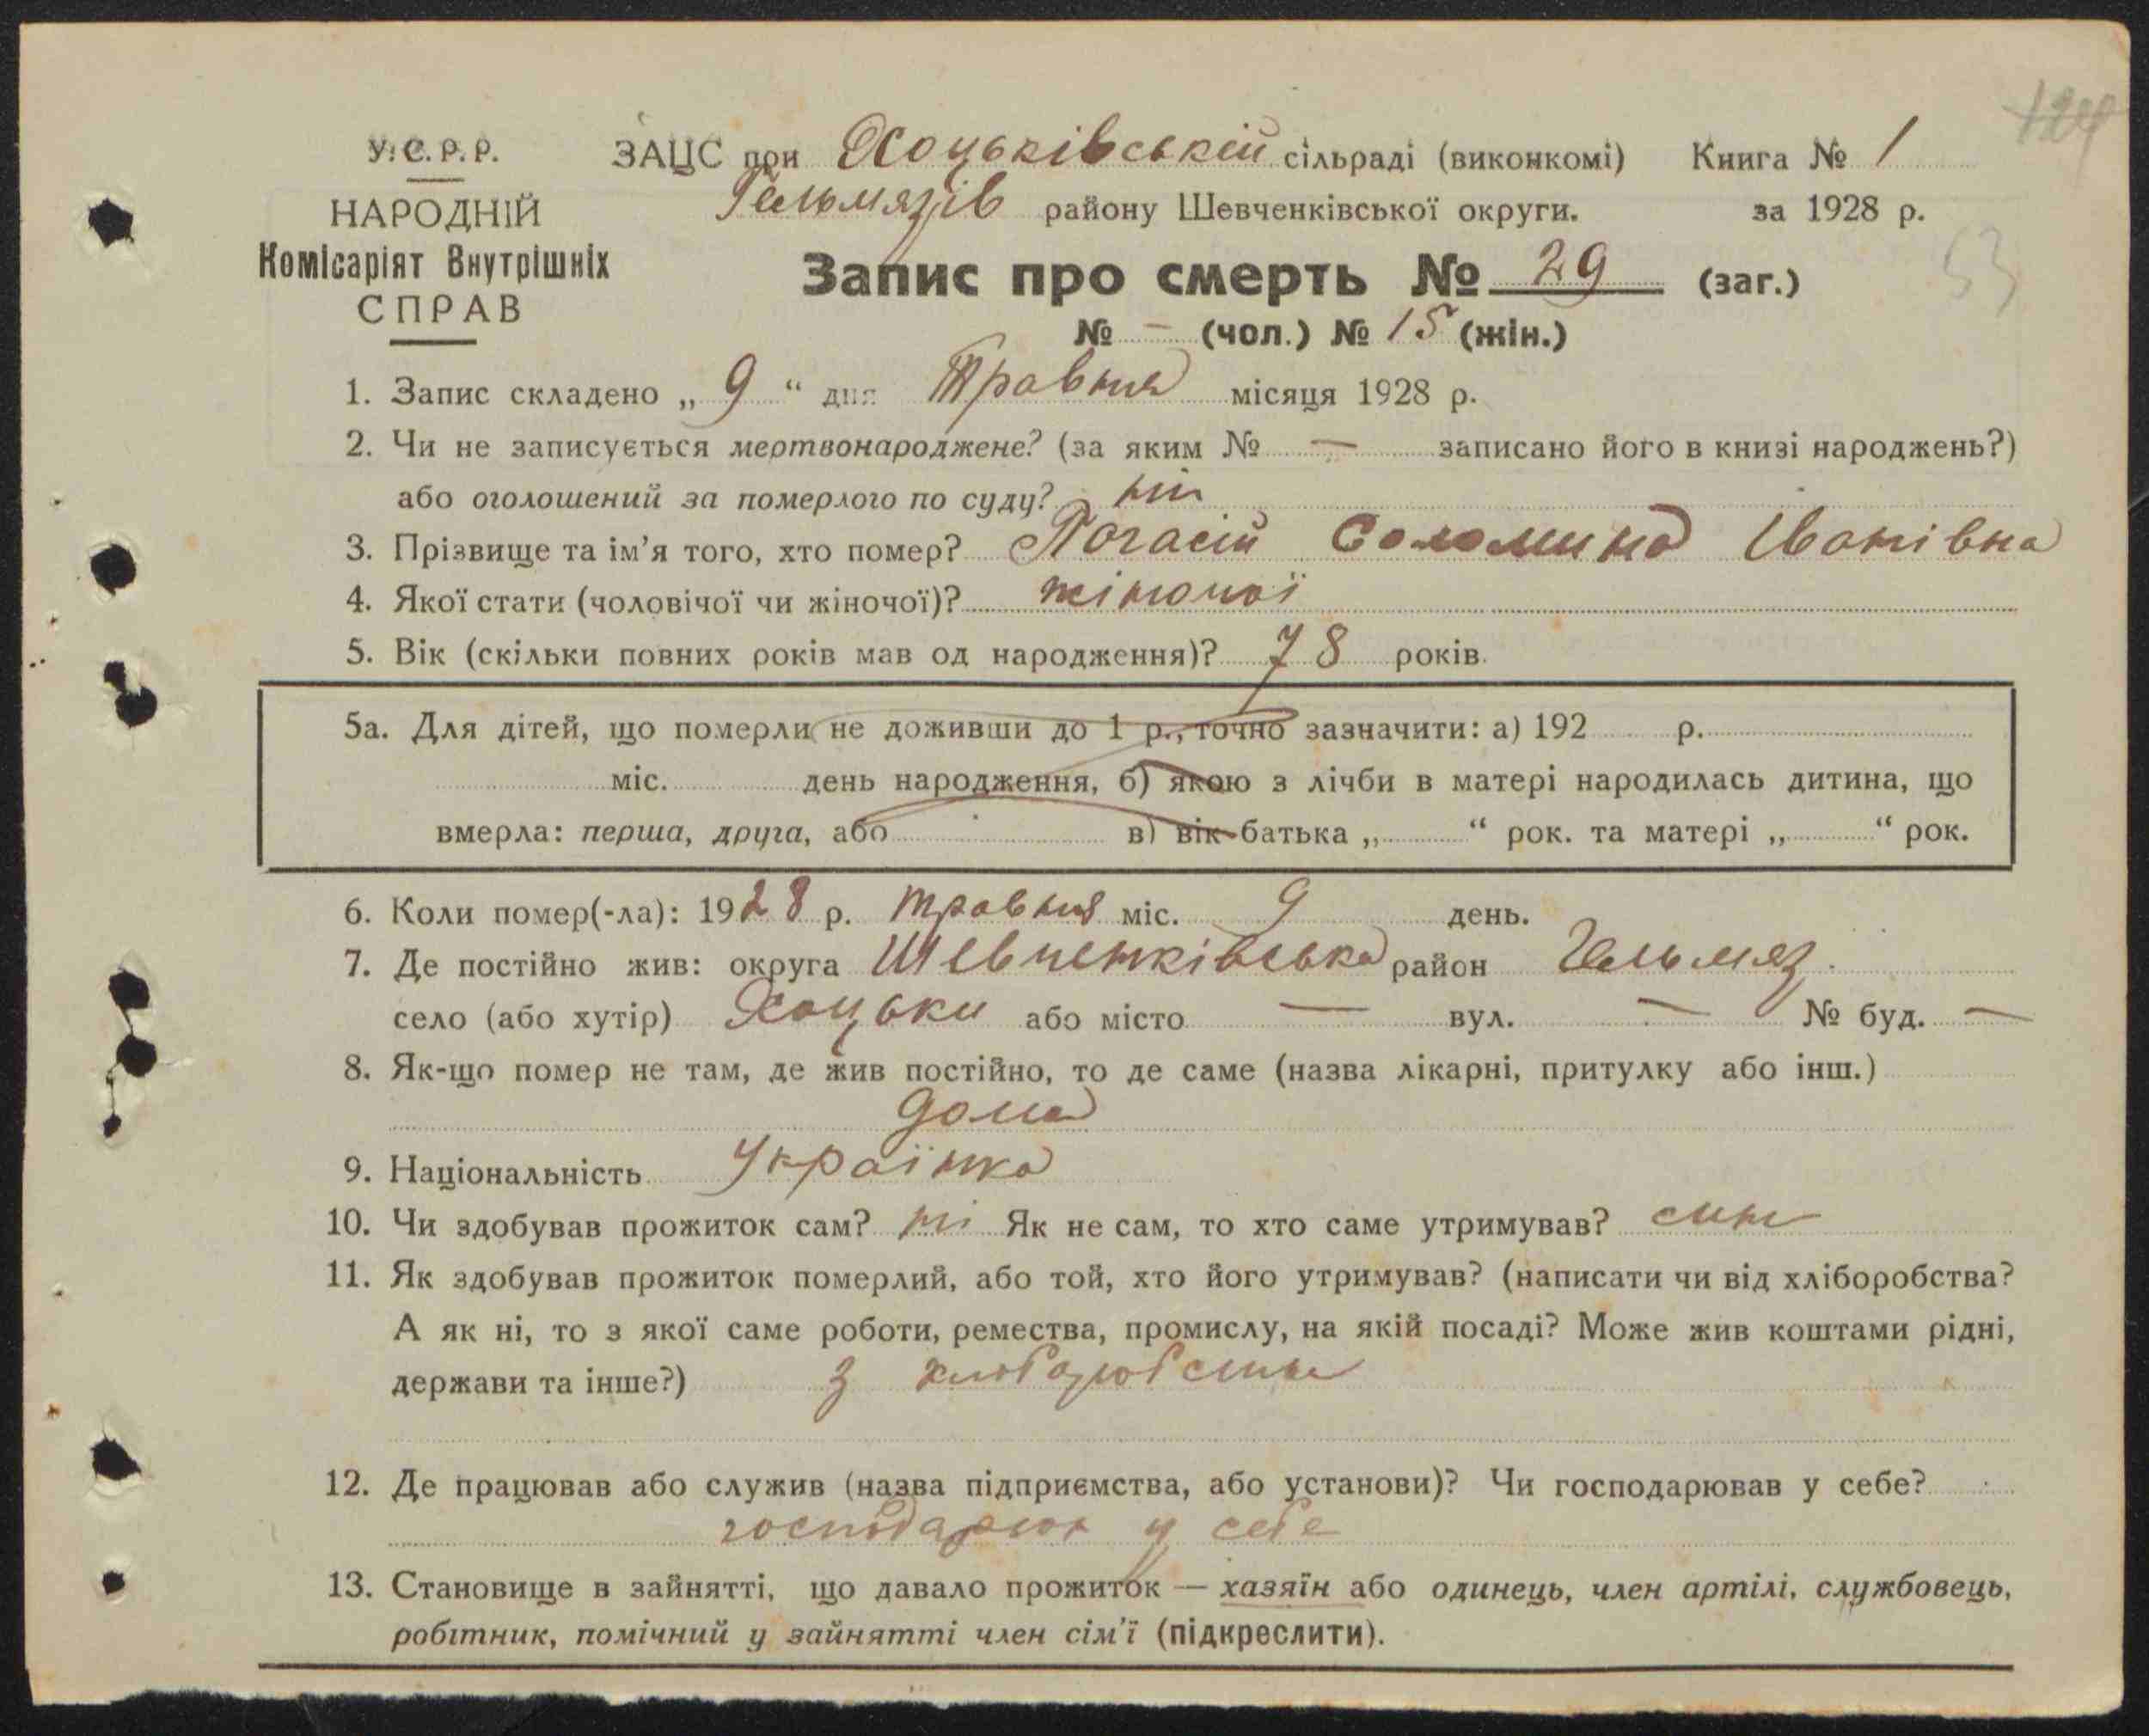 124
У.С.Р.Р.
НАРОДНІЙ
Комісаріят Внутрішніх
СПРАВ
ЗАЦС при Хоцьківській сільраді (виконкомі) Книга № 1
Гельмязів району Шевченківської округи. за 1928 р.
53
Запис про смерть № 29 (заг.)
№ – (чол.) № 15 (жін.)
1. Запис складено „ 9 “ дня Травня місяця 1928 р.
2. Чи не записується мертвонароджене? (за яким № — записано його в книзі народжень?)
або оголошений за померлого по суду? ні
3. Прізвище та ім’я того, хто помер? Погасій Соломина Іванівна
4. Якої стати (чоловічої чи жіночої)? жіночої
5. Вік (скільки повних років мав од народження)? 78 років.
5а. Для дітей, що померли не доживши до 1 р., точно зазначити: а) 192 р.
міс. день народження, б) якою з лічби в матері народилась дитина, що
вмерла: перша, друга, або в) вік батька „ “ рок. та матері „ “ рок.
6. Коли помер(-ла): 1928 р. травня міс. 9 день.
7. Де постійно жив: округа Шевченківська район Гельмяз.
село (або хутір) Хоцьки або місто — вул. — № буд. —
8. Як-що помер не там, де жив постійно, то де саме (назва лікарні, притулку або інш.)
дома
9. Національність Українка
10. Чи здобував прожиток сам? ні Як не сам, то хто саме утримував? син
11. Як здобував прожиток померлий, або той, хто його утримував? (написати чи від хліборобства?
А як ні, то з якої саме роботи, ремества, промислу, на якій посаді? Може жив коштами рідні,
держави та інше?) з
12. Де працював або служив (назва підприємства, або установи)? Чи господарював у себе?
господарює у себе
13. Становище в зайнятті, що давало прожиток — хазяїн або одинець, член артілі, службовець,
робітник, помічний у зайнятті член сім’ї (підкреслити).